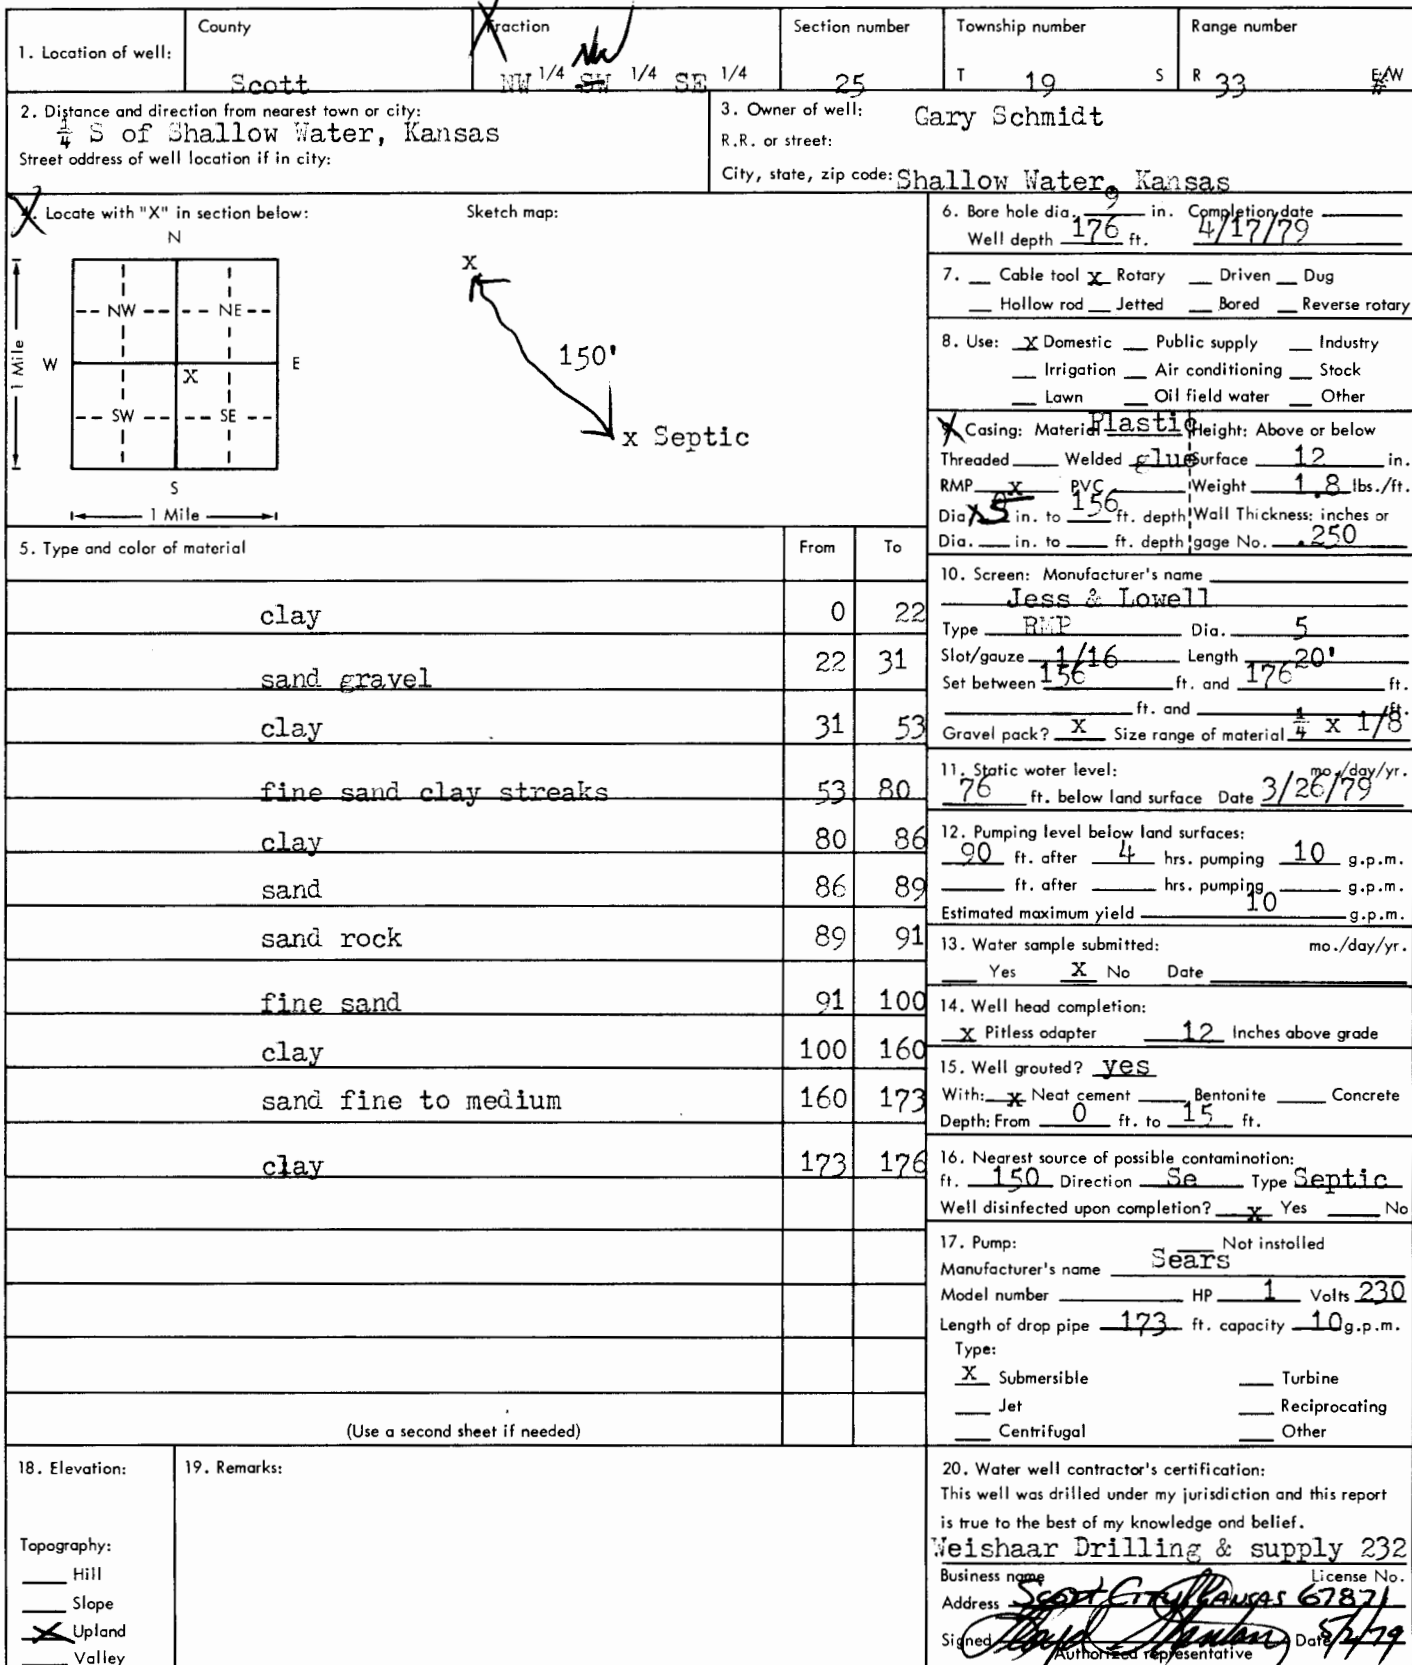 1. Location of well:
County
Scott
Fraction
NW 1/4 SW NW 1/4 SE 1/4
Section number
25
Township number
T 19 S
Range number
R 33 E/W
2. Distance and direction from nearest town or city:
1/4 S of Shallow Water, Kansas
Street address of well location if in city:
3. Owner of well: Gary Schmidt
R.R. or street:
City, state, zip code: Shallow Water, Kansas
4. Locate with "X" in section below:
Sketch map:
N
NW NE
W E
X
SW SE
S
1 Mile
1 Mile
x
150'
x Septic
5. Type and color of material From To
clay 0 22
sand gravel 22 31
clay 31 53
fine sand clay streaks 53 80
clay 80 86
sand 86 89
sand rock 89 91
fine sand 91 100
clay 100 160
sand fine to medium 160 173
clay 173 176
(Use a second sheet if needed)
6. Bore hole dia. 9 in. Completion date
Well depth 176 ft. 4/17/79
7. Cable tool x Rotary Driven Dug
Hollow rod Jetted Bored Reverse rotary
8. Use: X Domestic Public supply Industry
Irrigation Air conditioning Stock
Lawn Oil field water Other
9. Casing: Material Plastic Height: Above or below
Threaded Welded glue Surface 12 in.
RMP x PVC Weight 1.8 lbs./ft.
Dia. 5 in. to 156 ft. depth Wall Thickness: inches or
Dia. in. to ft. depth gage No. .250
10. Screen: Manufacturer's name
Jess & Lowell
Type RMP Dia. 5
Slot/gauze 1/16 Length 20'
Set between 156 ft. and 176 ft.
ft. and ft.
Gravel pack? X Size range of material 1/4 x 1/8
11. Static water level: mo./day/yr.
76 ft. below land surface Date 3/26/79
12. Pumping level below land surfaces:
90 ft. after 4 hrs. pumping 10 g.p.m.
ft. after hrs. pumping g.p.m.
Estimated maximum yield 10 g.p.m.
13. Water sample submitted: mo./day/yr.
Yes X No Date
14. Well head completion:
x Pitless adapter 12 Inches above grade
15. Well grouted? yes
With: x Neat cement Bentonite Concrete
Depth: From 0 ft. to 15 ft.
16. Nearest source of possible contamination:
ft. 150 Direction Se Type Septic
Well disinfected upon completion? x Yes No
17. Pump: Not installed
Manufacturer's name Sears
Model number HP 1 Volts 230
Length of drop pipe 173 ft. capacity 10 g.p.m.
Type:
X Submersible Turbine
Jet Reciprocating
Centrifugal Other
18. Elevation:
Topography:
Hill
Slope
X Upland
Valley
19. Remarks:
20. Water well contractor's certification:
This well was drilled under my jurisdiction and this report
is true to the best of my knowledge and belief.
Weishaar Drilling & supply 232
Business name License No.
Address Scott City Kansas 67871
Signed Date 5/2/79
Authorized representative